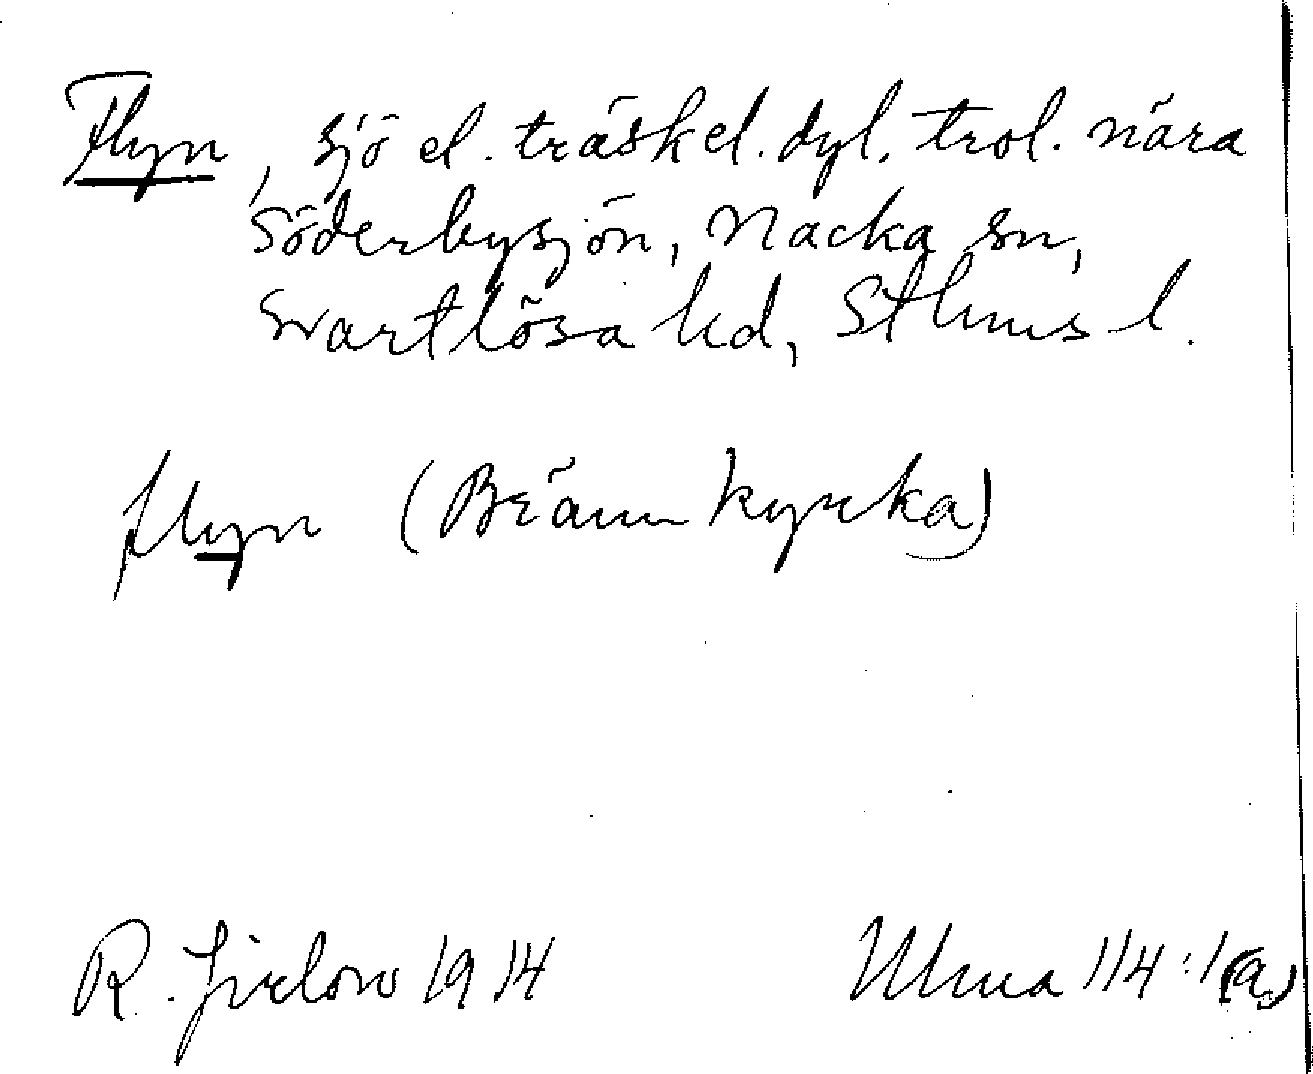 Flyn, sjö el. träsk el. dyl. trol. nära
Söderbysjön, Nacka sn,
Svartlösa hd, Sthlms l.
flyn (Brännkyrka)
R. Jirlow 1914
Ulma 114:1(a)